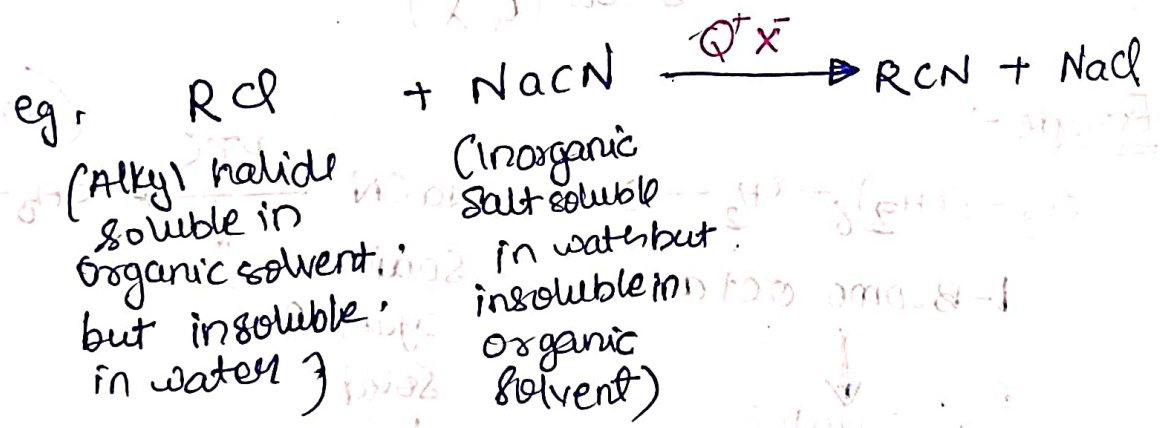 eg, RCl + NaCN Q⁺X⁻ → RCN + NaCl
(Alkyl halide
soluble in
organic solvent.
but insoluble
in water)
(Inorganic
Salt soluble
in water but
insoluble in
organic
solvent)